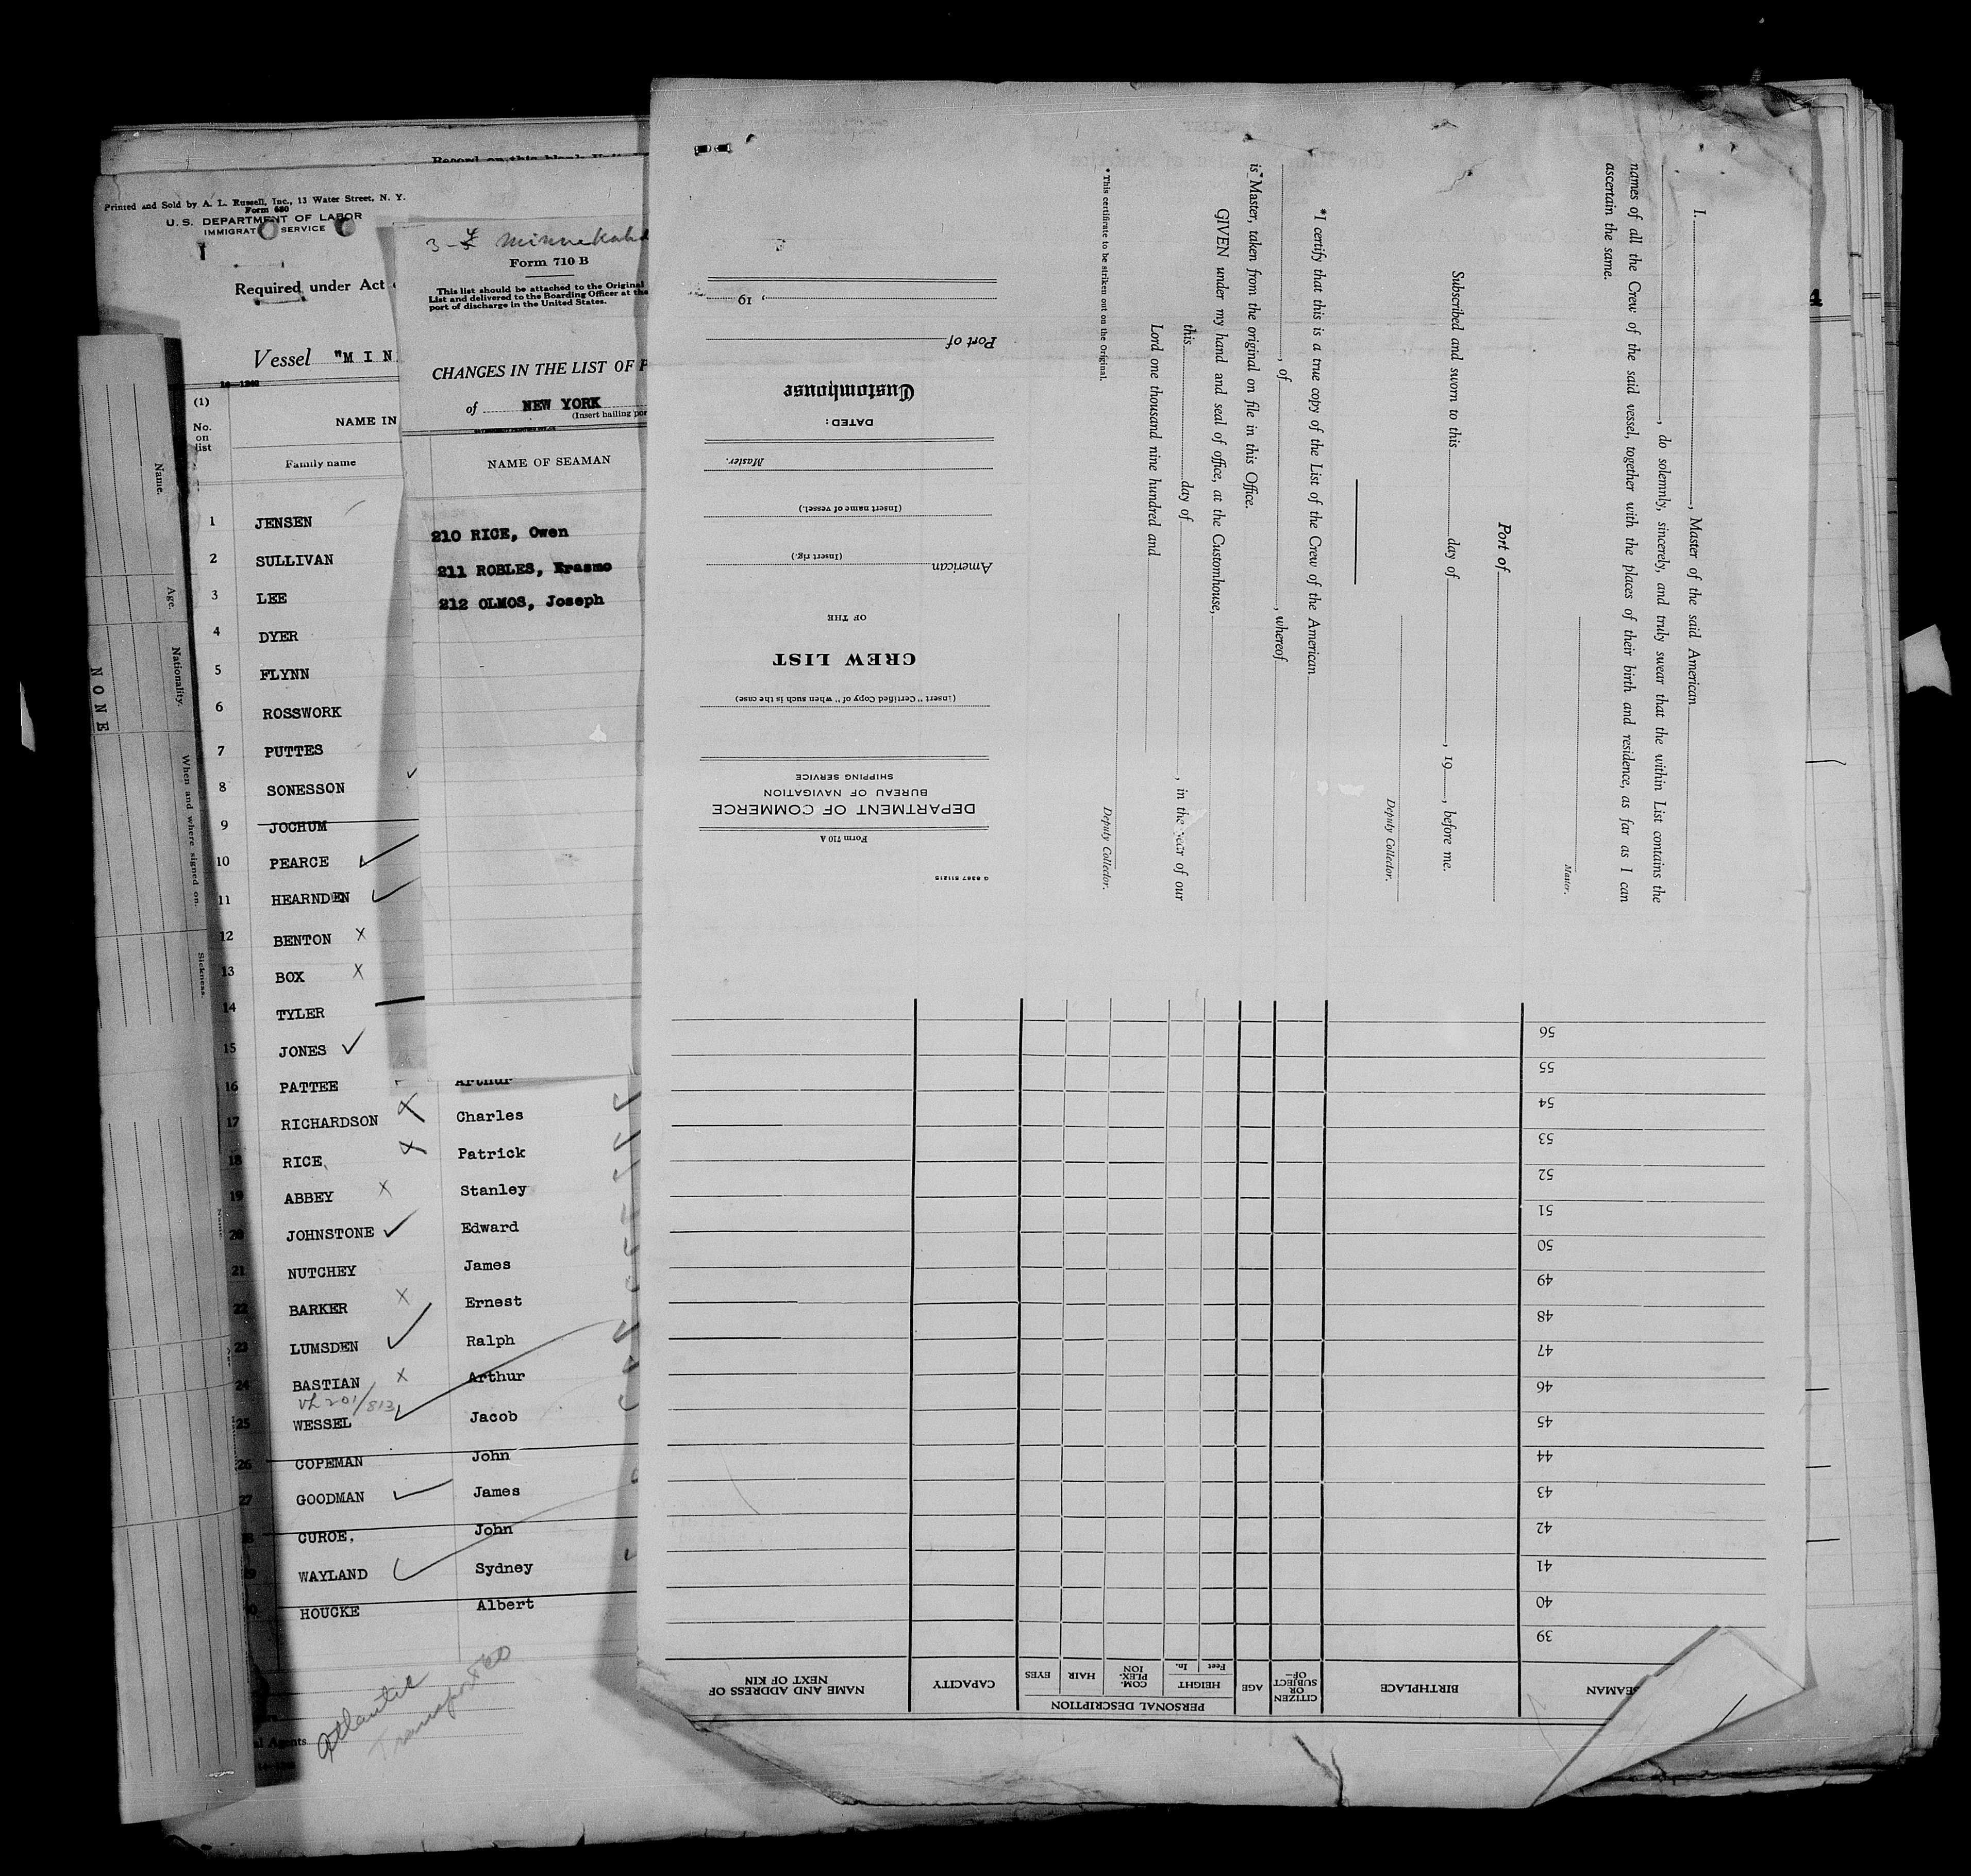 Record on this blank
Printed and Sold by A. L. Russell, Inc., 13 Water Street, N. Y.
Form 680
U. S. DEPARTMENT OF LABOR
IMMIGRAT SERVICE
Required under Act
Vessel "MIN
(1)
No.
on
list
NAME IN
Family name
1 JENSEN
2 SULLIVAN
3 LEE
4 DYER
5 FLYNN
6 ROSSWORK
7 PUTTES
8 SONESSON
9 JOCHUM
10 PEARCE
11 HEARNDEN
12 BENTON X
13 BOX X
14 TYLER
15 JONES
16 PATTEE Arthur
17 RICHARDSON X Charles
18 RICE, X Patrick
19 ABBEY X Stanley
20 JOHNSTONE Edward
21 NUTCHEY James
22 BARKER X Ernest
23 LUMSDEN Ralph
24 BASTIAN X Arthur
25 WESSEL Jacob
26 COPEMAN John
27 GOODMAN James
CUROE, John
WAYLAND Sydney
HOUCKE Albert
Atlantic
Transport Co
al Agents
Name.
Age.
Nationality.
When and where signed on.
Sickness.
NONE
3-
Form 710 B
This list should be attached to the Original
List and delivered to the Boarding Officer at the
port of discharge in the United States.
CHANGES IN THE LIST OF
of NEW YORK
(Insert hailing por
NAME OF SEAMAN
210 RICE, Owen
211 ROBLES, Erasmo
212 OLMOS, Joseph
I, Master of the said American
, do solemnly, sincerely, and truly swear that the within List contains the
names of all the Crew of the said vessel, together with the places of their birth and residence, as far as I can
ascertain the same.
Master.
Port of
Subscribed and sworn to this day of , 19 , before me.
Deputy Collector.
*I certify that this is a true copy of the List of the Crew of the American
, of , whereof
is Master, taken from the original on file in this Office.
GIVEN under my hand and seal of office, at the Customhouse,
this day of , in the year of our
Lord one thousand nine hundred and
Deputy Collector.
* This certificate to be striken out on the Original.
G 8367 511215
Form 710 A
DEPARTMENT OF COMMERCE
BUREAU OF NAVIGATION
SHIPPING SERVICE
(Insert "Certified Copy of" when such is the case)
CREW LIST
OF THE
American
(Insert rig.)
(Insert name of vessel.)
Master.
DATED:
Customhouse
Port of
, 19
SEAMAN
BIRTHPLACE
CITIZEN
OR
SUBJECT
OF—
AGE
PERSONAL DESCRIPTION
HEIGHT
Feet In.
COM-
PLEX-
ION
HAIR
EYES
CAPACITY
NAME AND ADDRESS OF
NEXT OF KIN
39
40
41
42
43
44
45
46
47
48
49
50
51
52
53
54
55
56
4